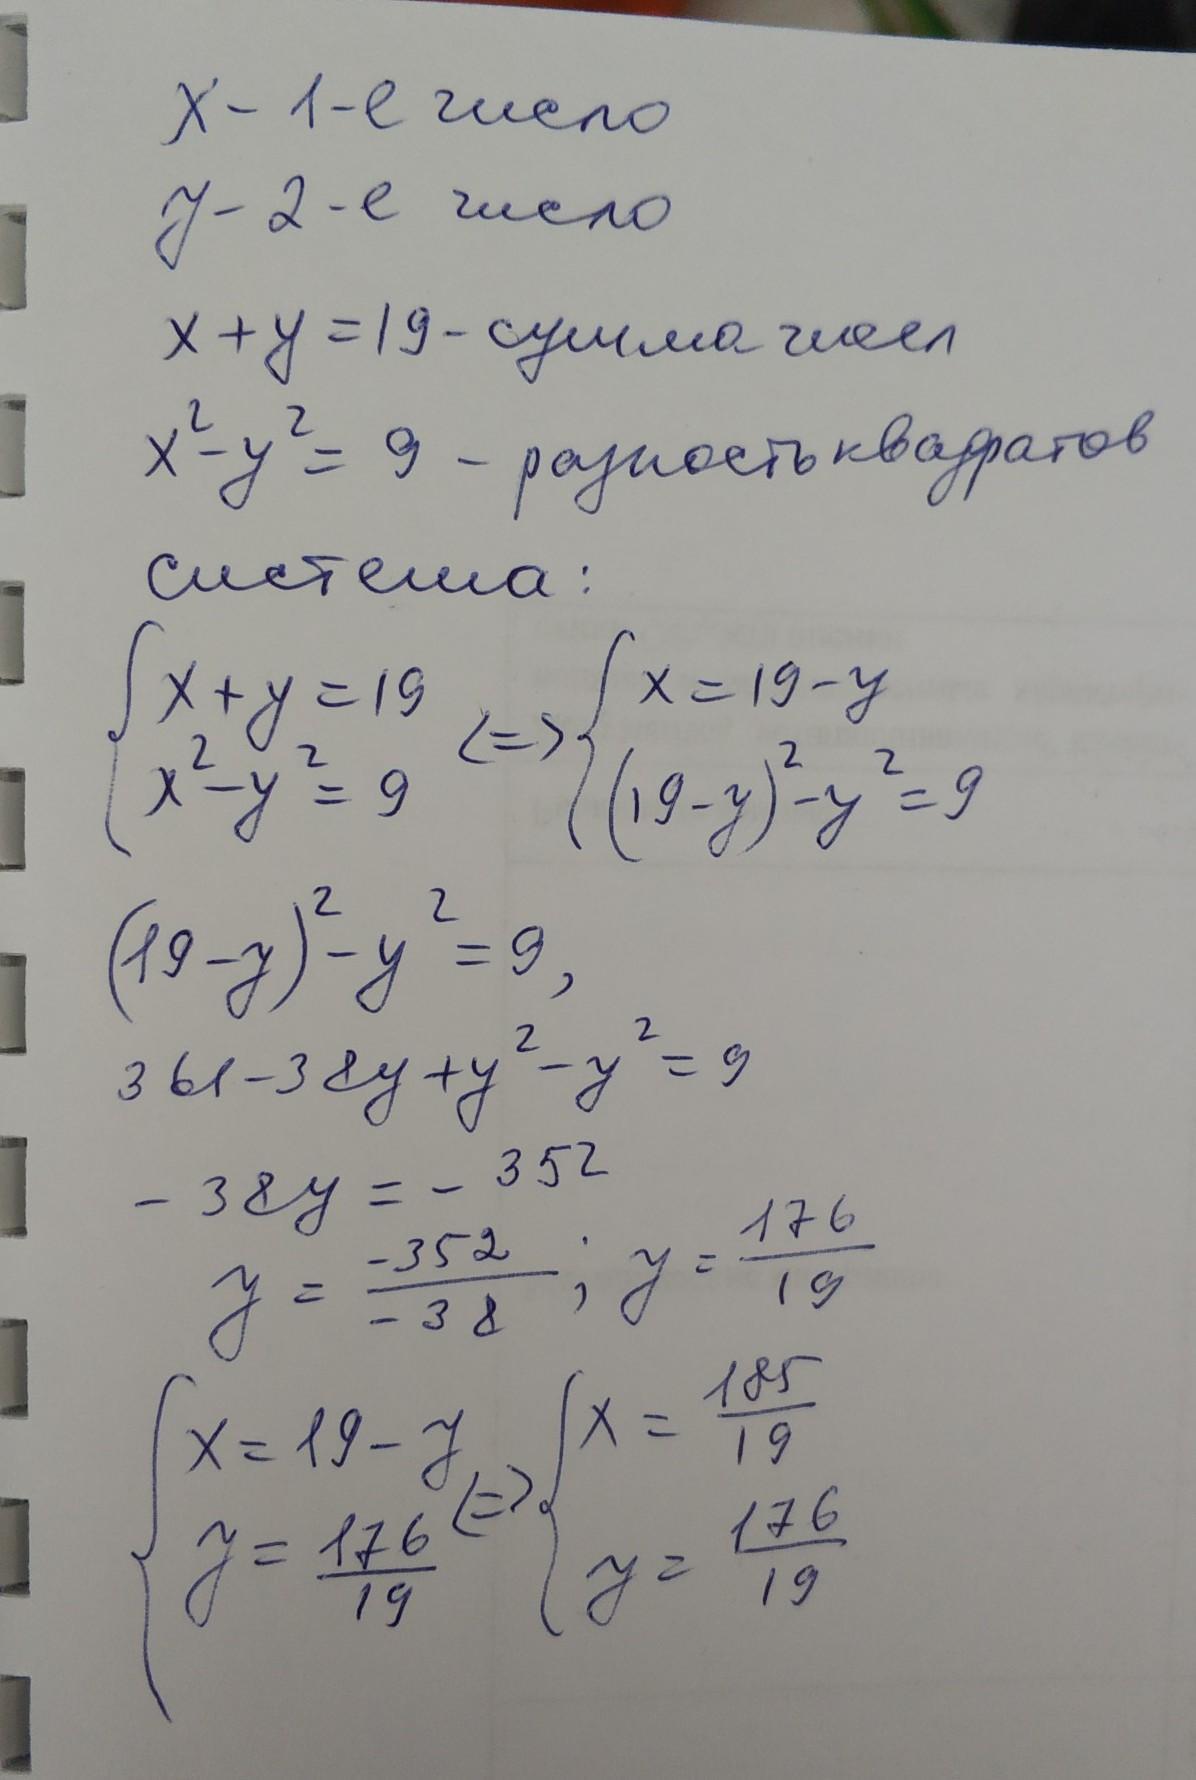 x - 1-е число
y - 2-е число
x + y = 19 - сумма чисел
x² - y² = 9 - разность квадратов
система:
{ x + y = 19 <=> { x = 19 - y
x² - y² = 9 (19 - y)² - y² = 9
(19 - y)² - y² = 9,
361 - 38y + y² - y² = 9
- 38y = - 352
y = -352/-38 ; y = 176/19
{ x = 19 - y <=> { x = 185/19
y = 176/19 y = 176/19